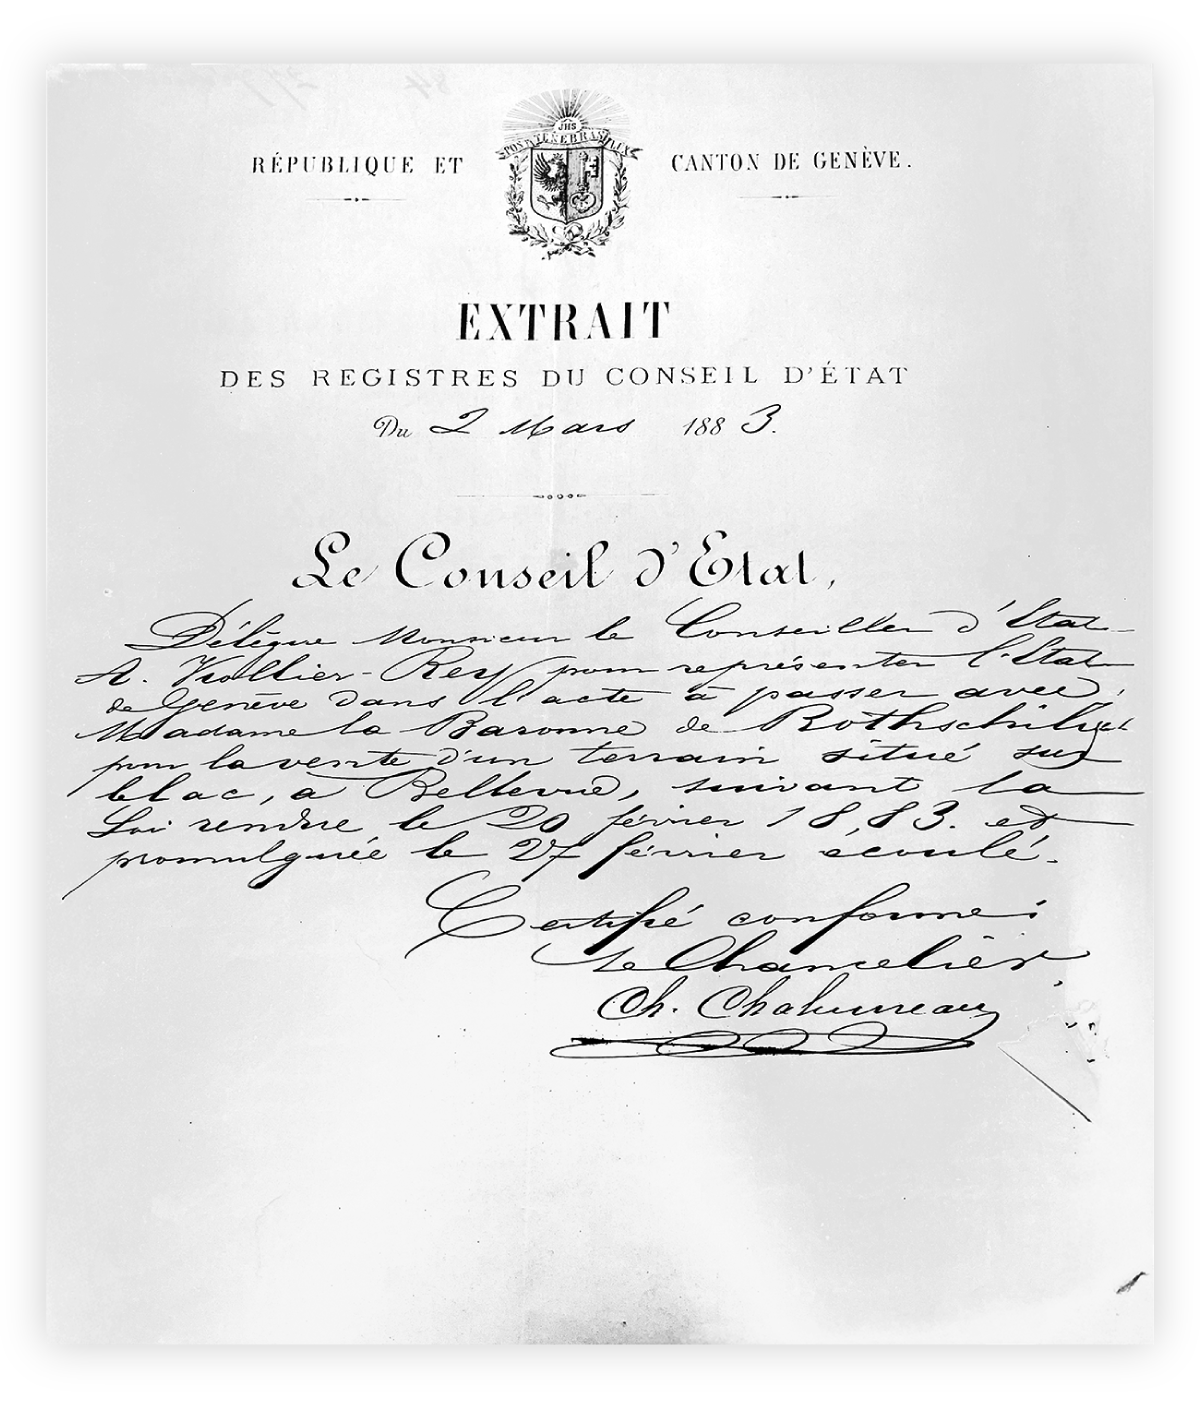 JHS
POST TENEBRAS LUX
RÉPUBLIQUE ET CANTON DE GENÈVE.
EXTRAIT
DES REGISTRES DU CONSEIL D'ÉTAT
Du 2 Mars 1883.
Le Conseil d'Etat,
Délègue Monsieur le Conseiller d'Etat
A. Viollier-Rey pour représenter l'Etat
de Genève dans l'acte à passer avec
Madame la Baronne de Rothschild
pour la vente d'un terrain situé sur
le lac, à Bellevue, suivant la
Loi rendue le 20 février 1883. et
promulguée le 27 février écoulé.
Certifié conforme:
Le Chancelier,
Ch. Chalumeau